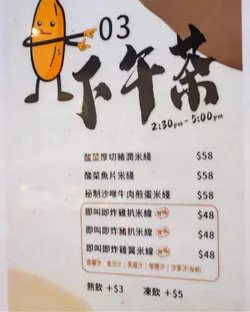 03
下午茶
2:30pm - 5:00pm
酸菜厚切豬潤米綫 $58
酸菜魚片米綫 $58
秘制沙嗲牛肉煎蛋米綫 $58
即叫即炸雞扒米線 $48
即叫即炸豬扒米線 $48
即叫即炸雞翼米線 $48
熱飲 +$3 凍飲 +$5